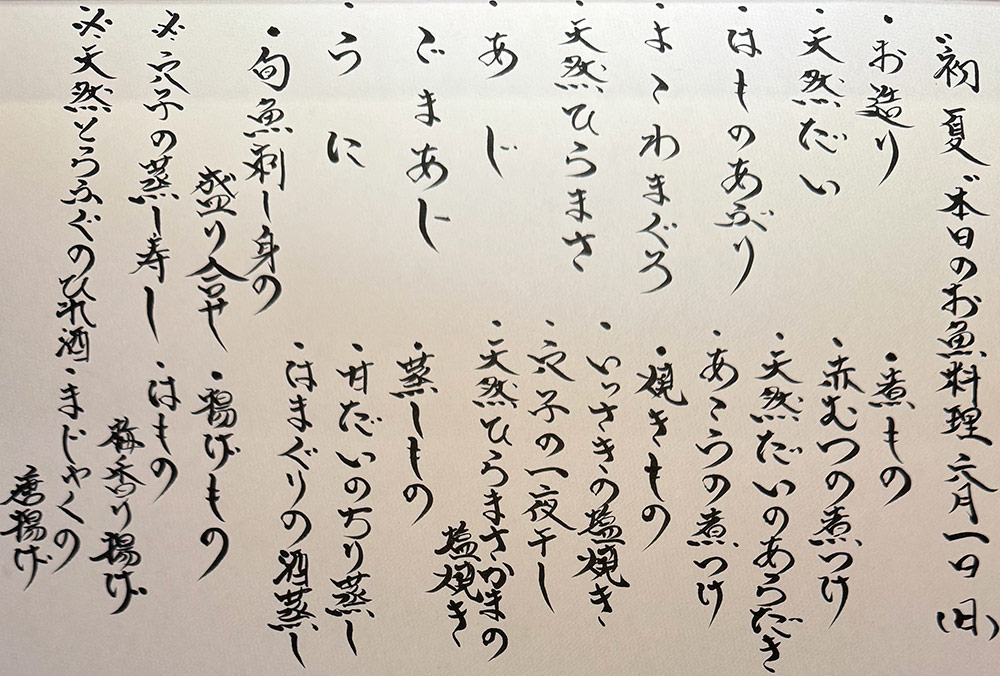 〝初夏〟本日のお魚料理 六月一日(日)
・お造り
・天然だい
・はものあぶり
・よこわまぐろ
・天然ひらまさ
・あじ
・ごまあじ
・うに
・旬魚刺し身の
盛り合せ
※穴子の蒸し寿し
※天然とらふぐのひれ酒
・煮もの
・赤むつの煮つけ
・天然だいのあらだき
・あこうの煮つけ
・焼きもの
・いっさきの塩焼き
・穴子の一夜干し
・天然ひらまさかまの
塩焼き
・蒸しもの
・甘だいのちり蒸し
・はまぐりの酒蒸し
・揚げもの
・はもの
梅香り揚げ
・まじゃくの
唐揚げ